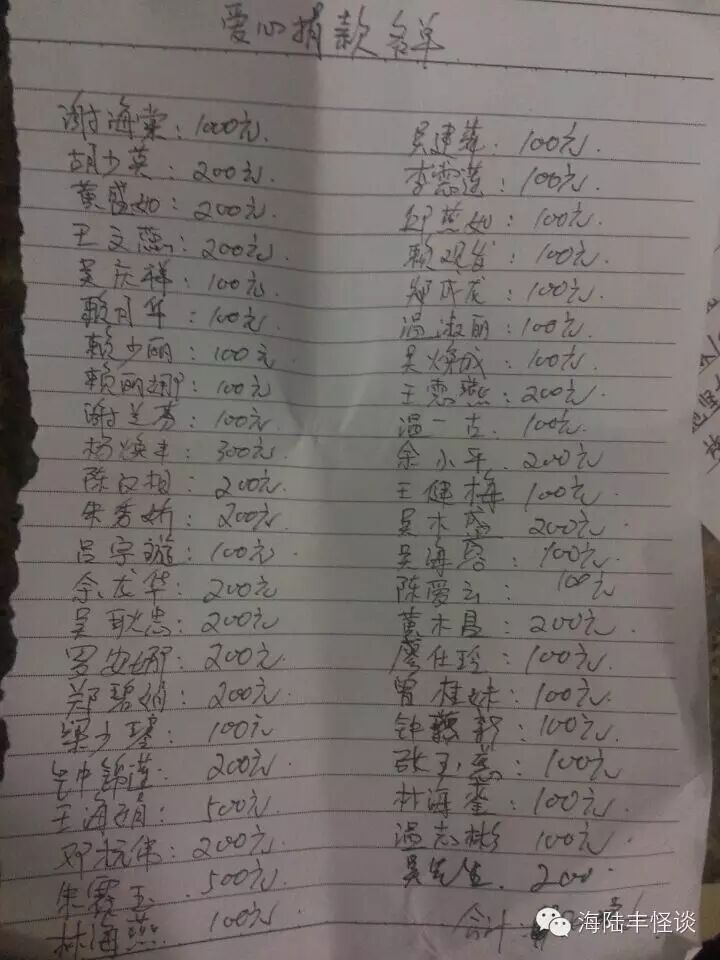 爱心捐款名单
谢海棠：1000元.
胡少英：200元.
黄盛如：200元.
王文燕：200元.
吴庆祥：100元.
赖月华：100元.
赖少丽：100元
赖丽娜：100元
谢兰芬：100元.
杨焕丰：300元.
陈汉相：200元.
朱秀娇：200元.
吕宇璇：100元.
余龙华：200元
吴耿忠：200元.
罗安娜：200元.
郑碧娟：200元.
梁少琴：100元
钟锦莲：200元.
王海娟：500元.
邓杭伟：200元.
朱霞玉：500元.
林海燕：100元.
吴建莲：100元.
李雪莲：100元.
邱燕如：100元.
赖观发：100元.
郑成龙：100元.
温淑丽：100元
吴焕成：100元.
王雪燕：200元.
温一古.100元.
余小平.200元
王健梅 100元.
吴木盛 200元.
吴海容：100元
陈爱云：100元
黄木昌：200元.
廖仕珍：100元.
曾桂妹：100元.
钟 ：100元.
张玉惠：100元
林海 ：100元.
温志彬 100元.
吴先生.200
合计
海陆丰怪谈